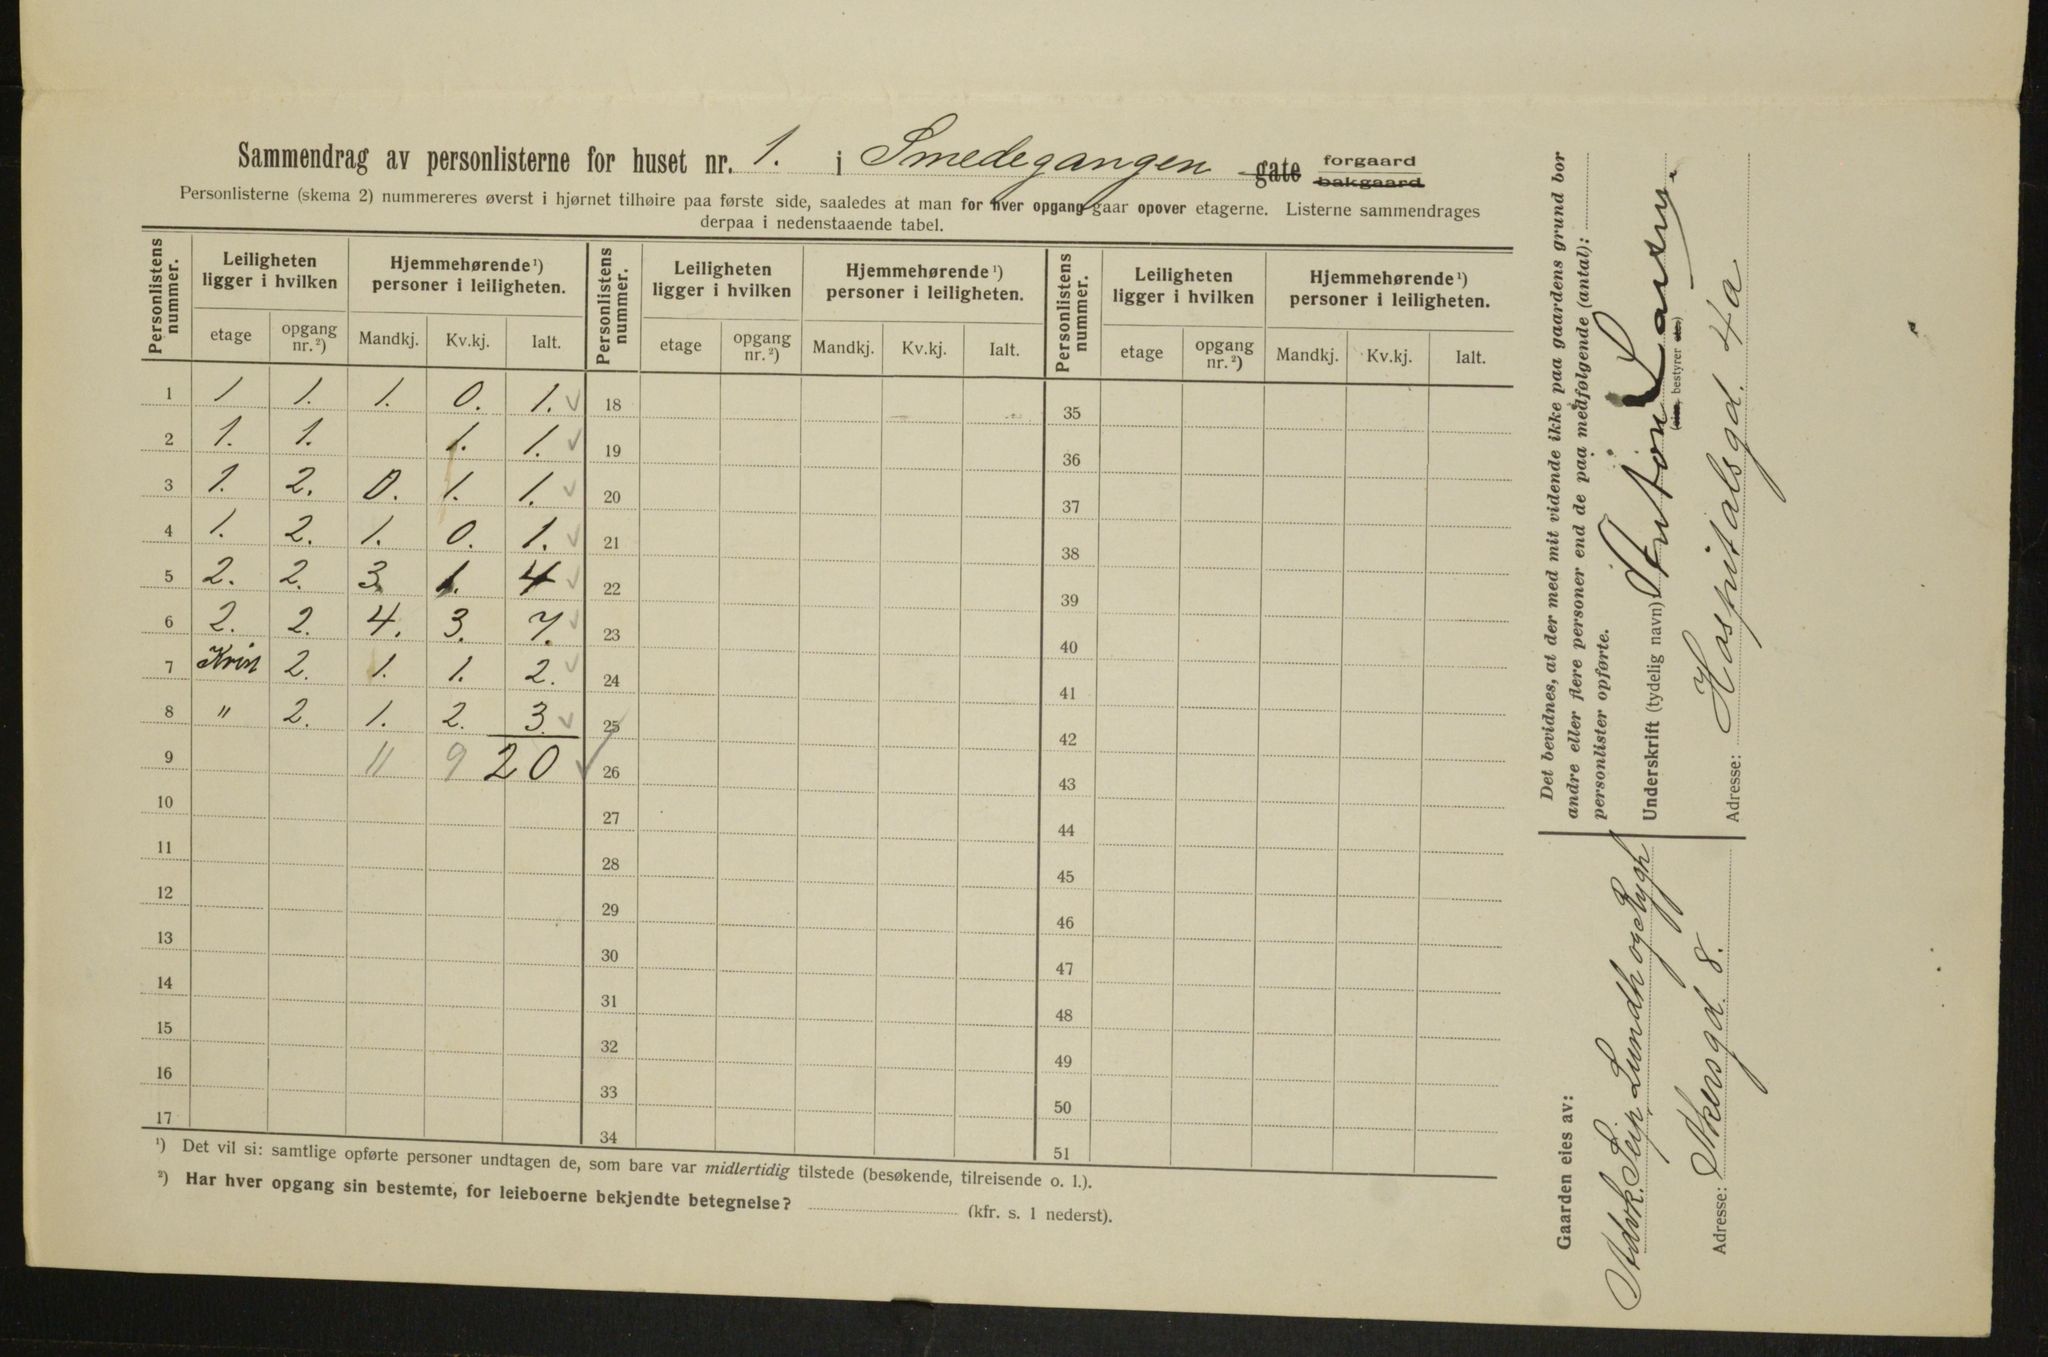 Sammendrag av personlisterne for huset nr. 1. i Smedegangen gate forgaard bakgaard
Personlisterne (skema 2) nummereres øverst i hjørnet tilhøire paa første side, saaledes at man for hver opgang gaar opover etagerne. Listerne sammendrages
derpaa i nedenstaaende tabel.
Personlistens nummer. Leiligheten ligger i hvilken Hjemmehørende ¹) personer i leiligheten. Personlistens nummer. Leiligheten ligger i hvilken Hjemmehørende ¹) personer i leiligheten. Personlistens nummer. Leiligheten ligger i hvilken Hjemmehørende ¹) personer i leiligheten.
etage opgang nr. ²) Mandkj. Kv.kj. Ialt. etage opgang nr. ²) Mandkj. Kv.kj. Ialt. etage opgang nr. ²) Mandkj. Kv.kj. Ialt.
1 1 1. 1. 0. 1. ✓ 18 35
2 1. 1. 1. 1. ✓ 19 36
3 1. 2. 0. 1. 1. ✓ 20 37
4 1. 2. 1. 0. 1. ✓ 21 38
5 2. 2. 3. 1. 4 ✓ 22 39
6 2. 2. 4. 3. 7. ✓ 23 40
7 Kvist 2. 1. 1. 2. ✓ 24 41
8 " 2. 1. 2. 3. ✓ 25 42
9 11 9 20 ✓ 26 43
10 27 44
11 28 45
12 29 46
13 30 47
14 31 48
15 32 49
16 33 50
17 34 51
¹) Det vil si: samtlige opførte personer undtagen de, som bare var midlertidig tilstede (besøkende, tilreisende o. l.).
²) Har hver opgang sin bestemte, for leieboerne bekjendte betegnelse? (kfr. s. 1 nederst).
Det bevidnes, at der med mit vidende ikke paa gaardens grund bor
andre eller flere personer end de paa medfølgende (antal):
personlister opførte.
Underskrift (tydelig navn): Anton Larsen.
(eier, bestyrer etc.)
Adresse: Hospitalsgd. 4a
Gaarden eies av:
Advk. Seip, Lundh og
Adresse: Akersgd. 8.